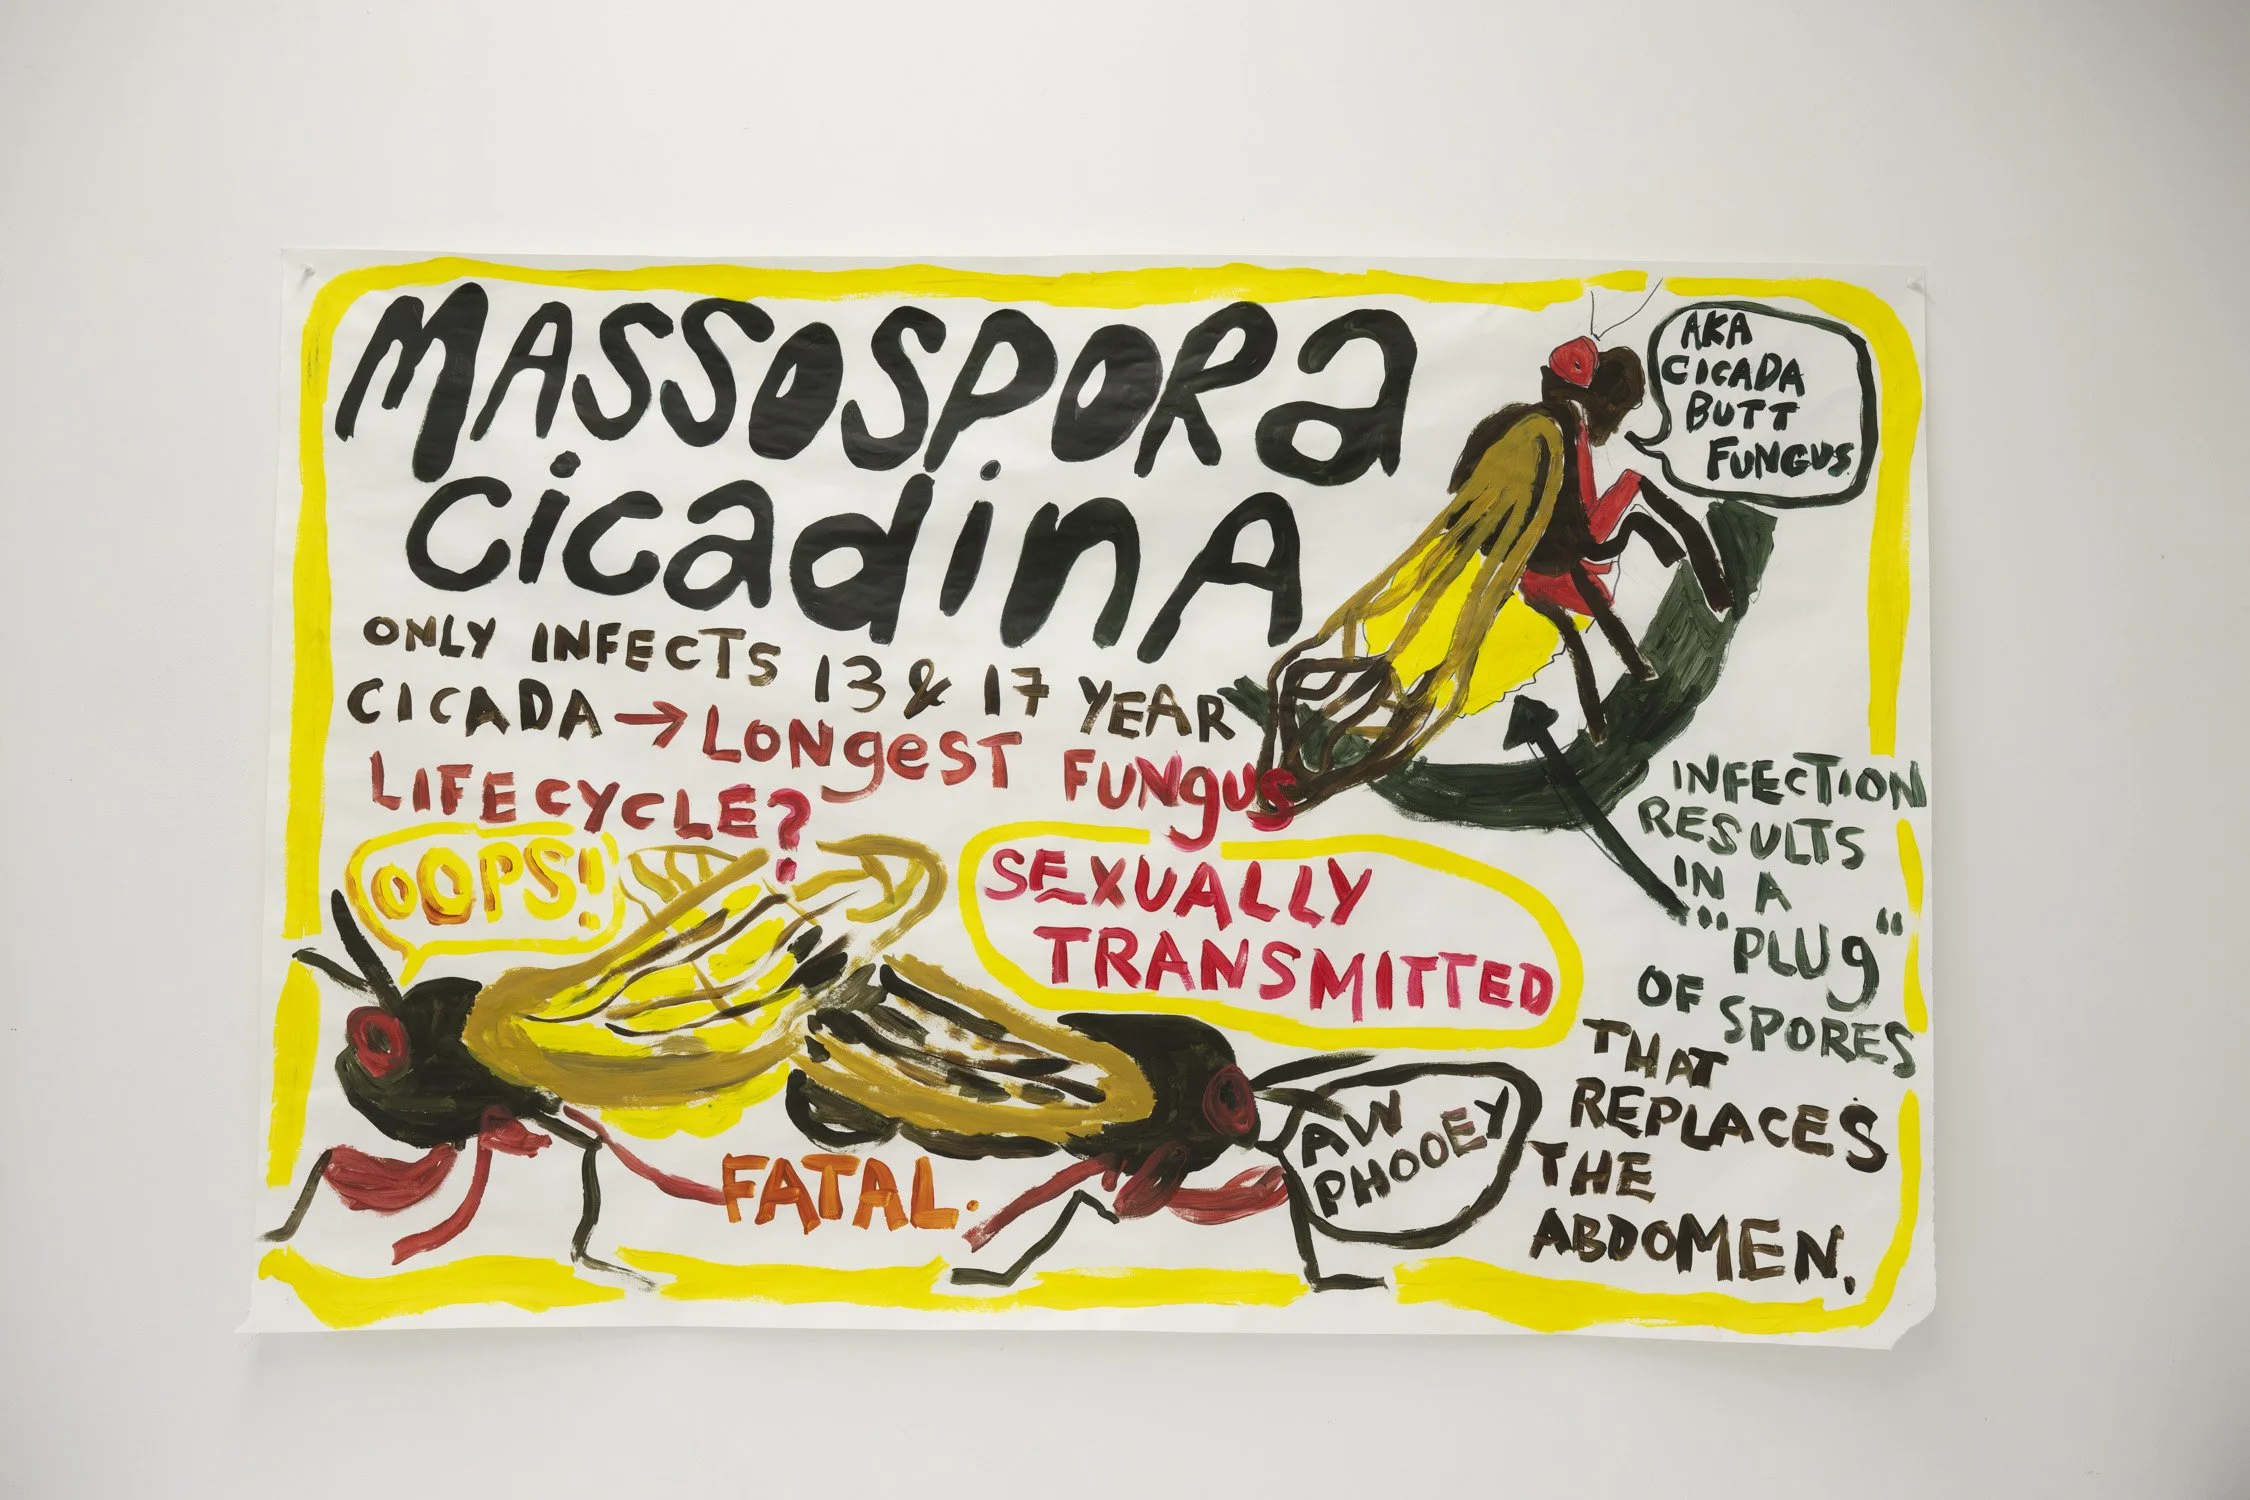 MASSOSPORa
cicadinA
AKA
CICADA
BUTT
FUNGUS.
ONLY INFECTS 13 & 17 YEAR
CICADA → LONgEST FUNgUS
LIFECYCLE?
OOPS!
SEXUALLY
TRANSMITTED
FATAL.
AW
PHOOEY
INFECTION
RESULTS
IN A
"PLUg"
OF SPORES
THAT
REPLACES
THE
ABDOMEN.